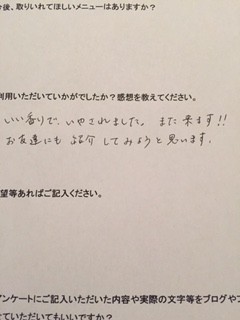 今後、取りいれてほしいメニューはありますか？
利用いただいていかがでしたか？感想を教えてください。
いい香りで、いやされました。また来ます!!
お友達にも紹介してみようと思います。
望等あればご記入ください。
アンケートにご記入いただいた内容や実際の文字等をブログや
せていただいてもいいですか？